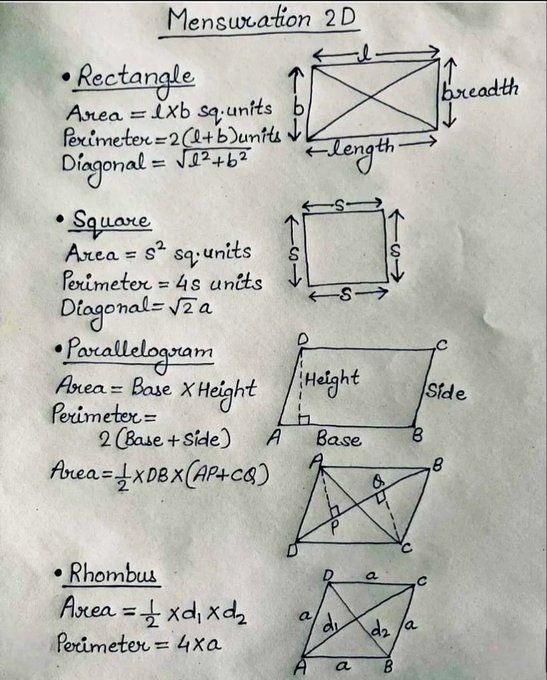 Mensuration 2D
• Rectangle
Area = l×b sq.units
Perimeter=2(l+b)units
Diagonal = √l²+b²
l
b
breadth
length
• Square
Area = s² sq.units
Perimeter = 4s units
Diagonal=√2 a
s
s
s
s
• Parallelogram
Area = Base × Height
Perimeter =
2(Base + Side)
D
C
Height
Side
A
Base
B
Area=1/2×DB×(AP+CQ)
A
B
Q
P
D
C
• Rhombus
Area = 1/2 ×d₁×d₂
Perimeter = 4×a
D
a
C
a
d₁
d₂
a
A
a
B